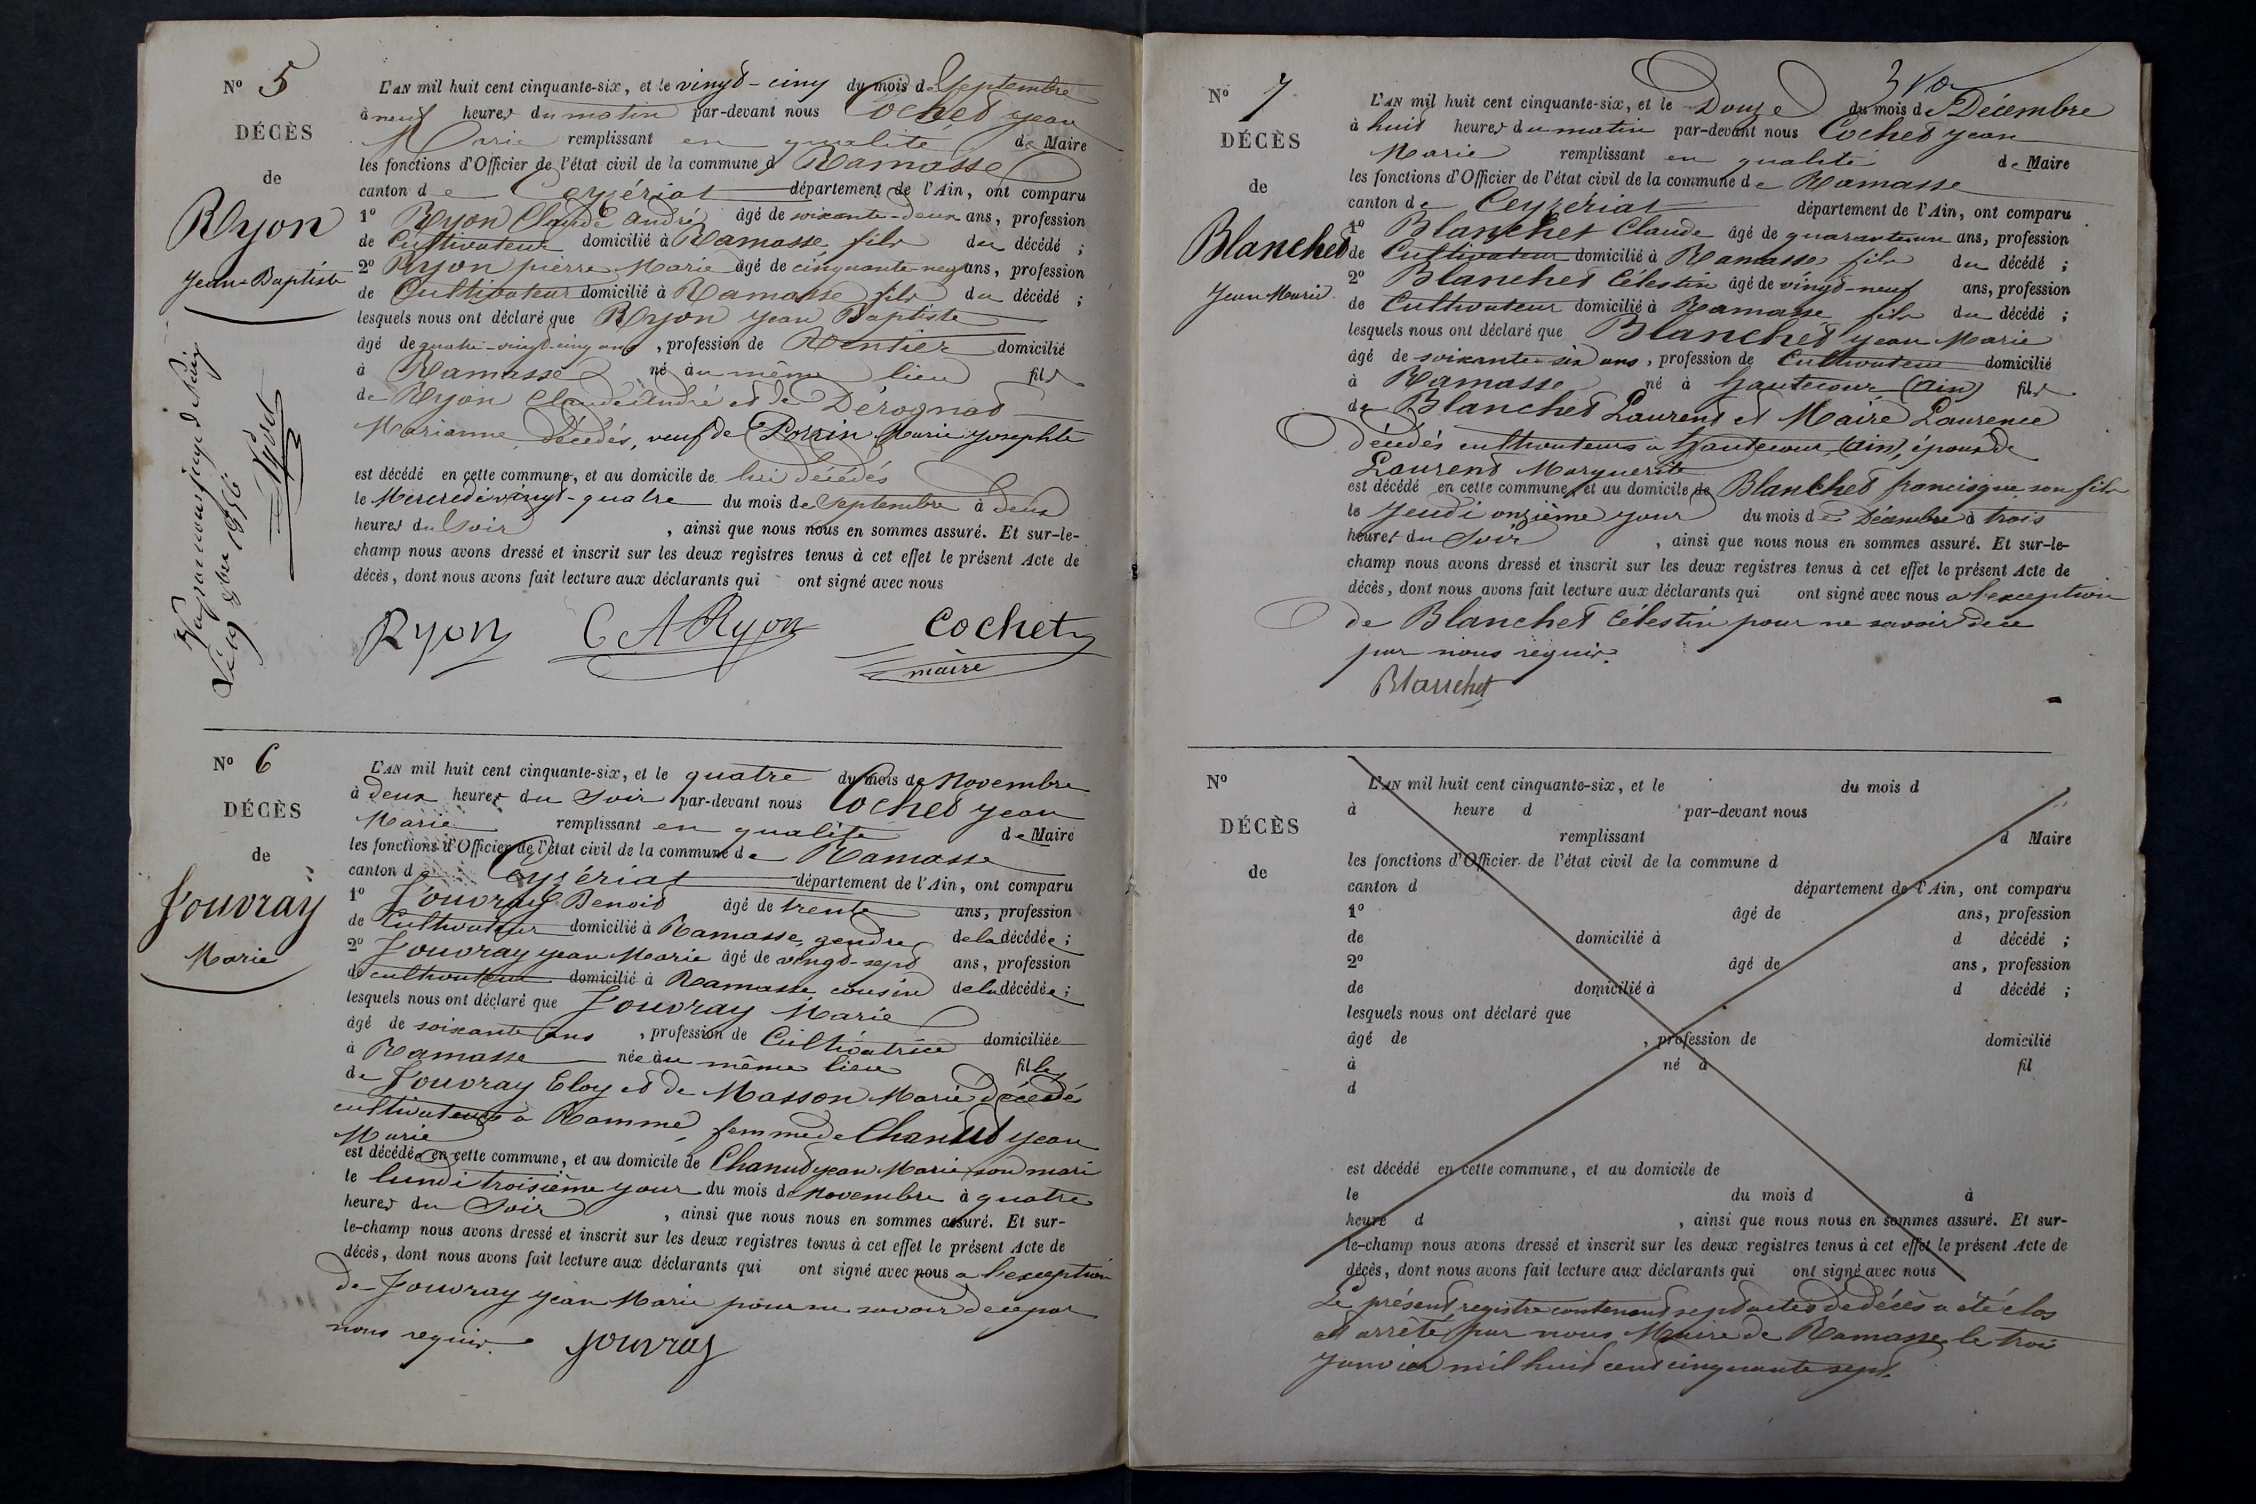 Nº 5
DÉCÈS
de
Ryon
Jean Baptiste
L'AN mil huit cent cinquante-six, et le vingt-cinq du mois de Septembre
à neuf heures du matin par-devant nous Cochet Jean
Marie remplissant en qualité de Maire
les fonctions d'Officier de l'état civil de la commune d Ramasse
canton de Ceyzériat département de l'Ain, ont comparu
1º Ryon Claude André âgé de soixante-deux ans, profession
de Cultivateur domicilié à Ramasse fils du décédé ;
2º Ryon pierre Marie âgé de cinquante-neuf ans, profession
de Cultivateur domicilié à Ramasse fils du décédé ;
lesquels nous ont déclaré que Ryon Jean Baptiste
âgé de quatre-vingt-cinq ans, profession de Rentier domicilié
à Ramasse né au même lieu fils
de Ryon Claude André et de Dérognat
Marianne Décédés, veuf de Perrin Marie Josephte
est décédé en cette commune, et au domicile de lui décédés
le Mercredi vingt-quatre du mois de Septembre à deux
heures du Soir, ainsi que nous nous en sommes assuré. Et sur-le-
champ nous avons dressé et inscrit sur les deux registres tenus à cet effet le présent Acte de
décès, dont nous avons fait lecture aux déclarants qui ont signé avec nous
Ryon C A Ryon Cochet
maire
Nº 6
DÉCÈS
de
Jouvray
Marie
L'AN mil huit cent cinquante-six, et le quatre du mois de Novembre
à deux heures du Soir par-devant nous Cochet Jean
Marie remplissant en qualité de Maire
les fonctions d'Officier de l'état civil de la commune de Ramasse
canton de Ceyzériat département de l'Ain, ont comparu
1º Jouvray Benoit âgé de trente ans, profession
de Cultivateur domicilié à Ramasse, gendre de la décédée ;
2º Jouvray Jean Marie âgé de vingt-sept ans, profession
de cultivateur domicilié à Ramasse cousin de la décédée ;
lesquels nous ont déclaré que Jouvray Marie
âgé de soixante ans, profession de Cultivatrice domiciliée
à Ramasse née au même lieu fille
de Jouvray Eloy et de Masson Marie Décédés
cultivateurs a femme de Chanud Jean
Marie
est décédée en cette commune, et au domicile de Chanud Jean Marie son mari
le lundi troisième jour du mois de Novembre à quatre
heures du Soir, ainsi que nous nous en sommes assuré. Et sur-
le-champ nous avons dressé et inscrit sur les deux registres tenus à cet effet le présent Acte de
décès, dont nous avons fait lecture aux déclarants qui ont signé avec nous a l'exception
de Jouvray Jean Marie pour ne savoir de ce par
nous requis.
Jouvray
Nº 7
DÉCÈS
de
Blanchet
Jean Marie
L'AN mil huit cent cinquante-six, et le Douze du mois de Décembre
à huit heures du matin par-devant nous Cochet Jean
Marie remplissant en qualité de Maire
les fonctions d'Officier de l'état civil de la commune de Ramasse
canton de Ceyzériat département de l'Ain, ont comparu
1º Blanchet Claude âgé de quarante-un ans, profession
de Cultivateur domicilié à Ramasse fils du décédé ;
2º Blanchet Célestin âgé de vingt-neuf ans, profession
de Cultivateur domicilié à Ramasse fils du décédé ;
lesquels nous ont déclaré que Blanchet Jean Marie
âgé de soixante-six ans, profession de Cultivateur domicilié
à Ramasse né à hautecour (ain) fils
de Blanchet Laurent et Maire Laurence
décédés cultivateurs a hautecour (ain), époux de
Laurent Marguerite
est décédé en cette commune, et au domicile de Blanchet francisque son fils
le Jeudi onzième jour du mois de Décembre à trois
heures du Soir, ainsi que nous nous en sommes assuré. Et sur-le-
champ nous avons dressé et inscrit sur les deux registres tenus à cet effet le présent Acte de
décès, dont nous avons fait lecture aux déclarants qui ont signé avec nous a l'exception
de Blanchet Célestin pour ne savoir de ce
par nous requis.
Blanchet
Nº
DÉCÈS
de
L'AN mil huit cent cinquante-six, et le du mois d
à heure d par-devant nous
remplissant d Maire
les fonctions d'Officier de l'état civil de la commune d
canton d département de l'Ain, ont comparu
1º âgé de ans, profession
de domicilié à d décédé ;
2º âgé de ans, profession
de domicilié à d décédé ;
lesquels nous ont déclaré que
âgé de , profession de domicilié
à né à fil
d
est décédé en cette commune, et au domicile de
le du mois d à
heure d , ainsi que nous nous en sommes assuré. Et sur-
le-champ nous avons dressé et inscrit sur les deux registres tenus à cet effet le présent Acte de
décès, dont nous avons fait lecture aux déclarants qui ont signé avec nous
Le présent registre contenant sept actes de décès a été clos
et arrêté par nous Maire de Ramasse le trois
Janvier mil huit cent cinquante sept.